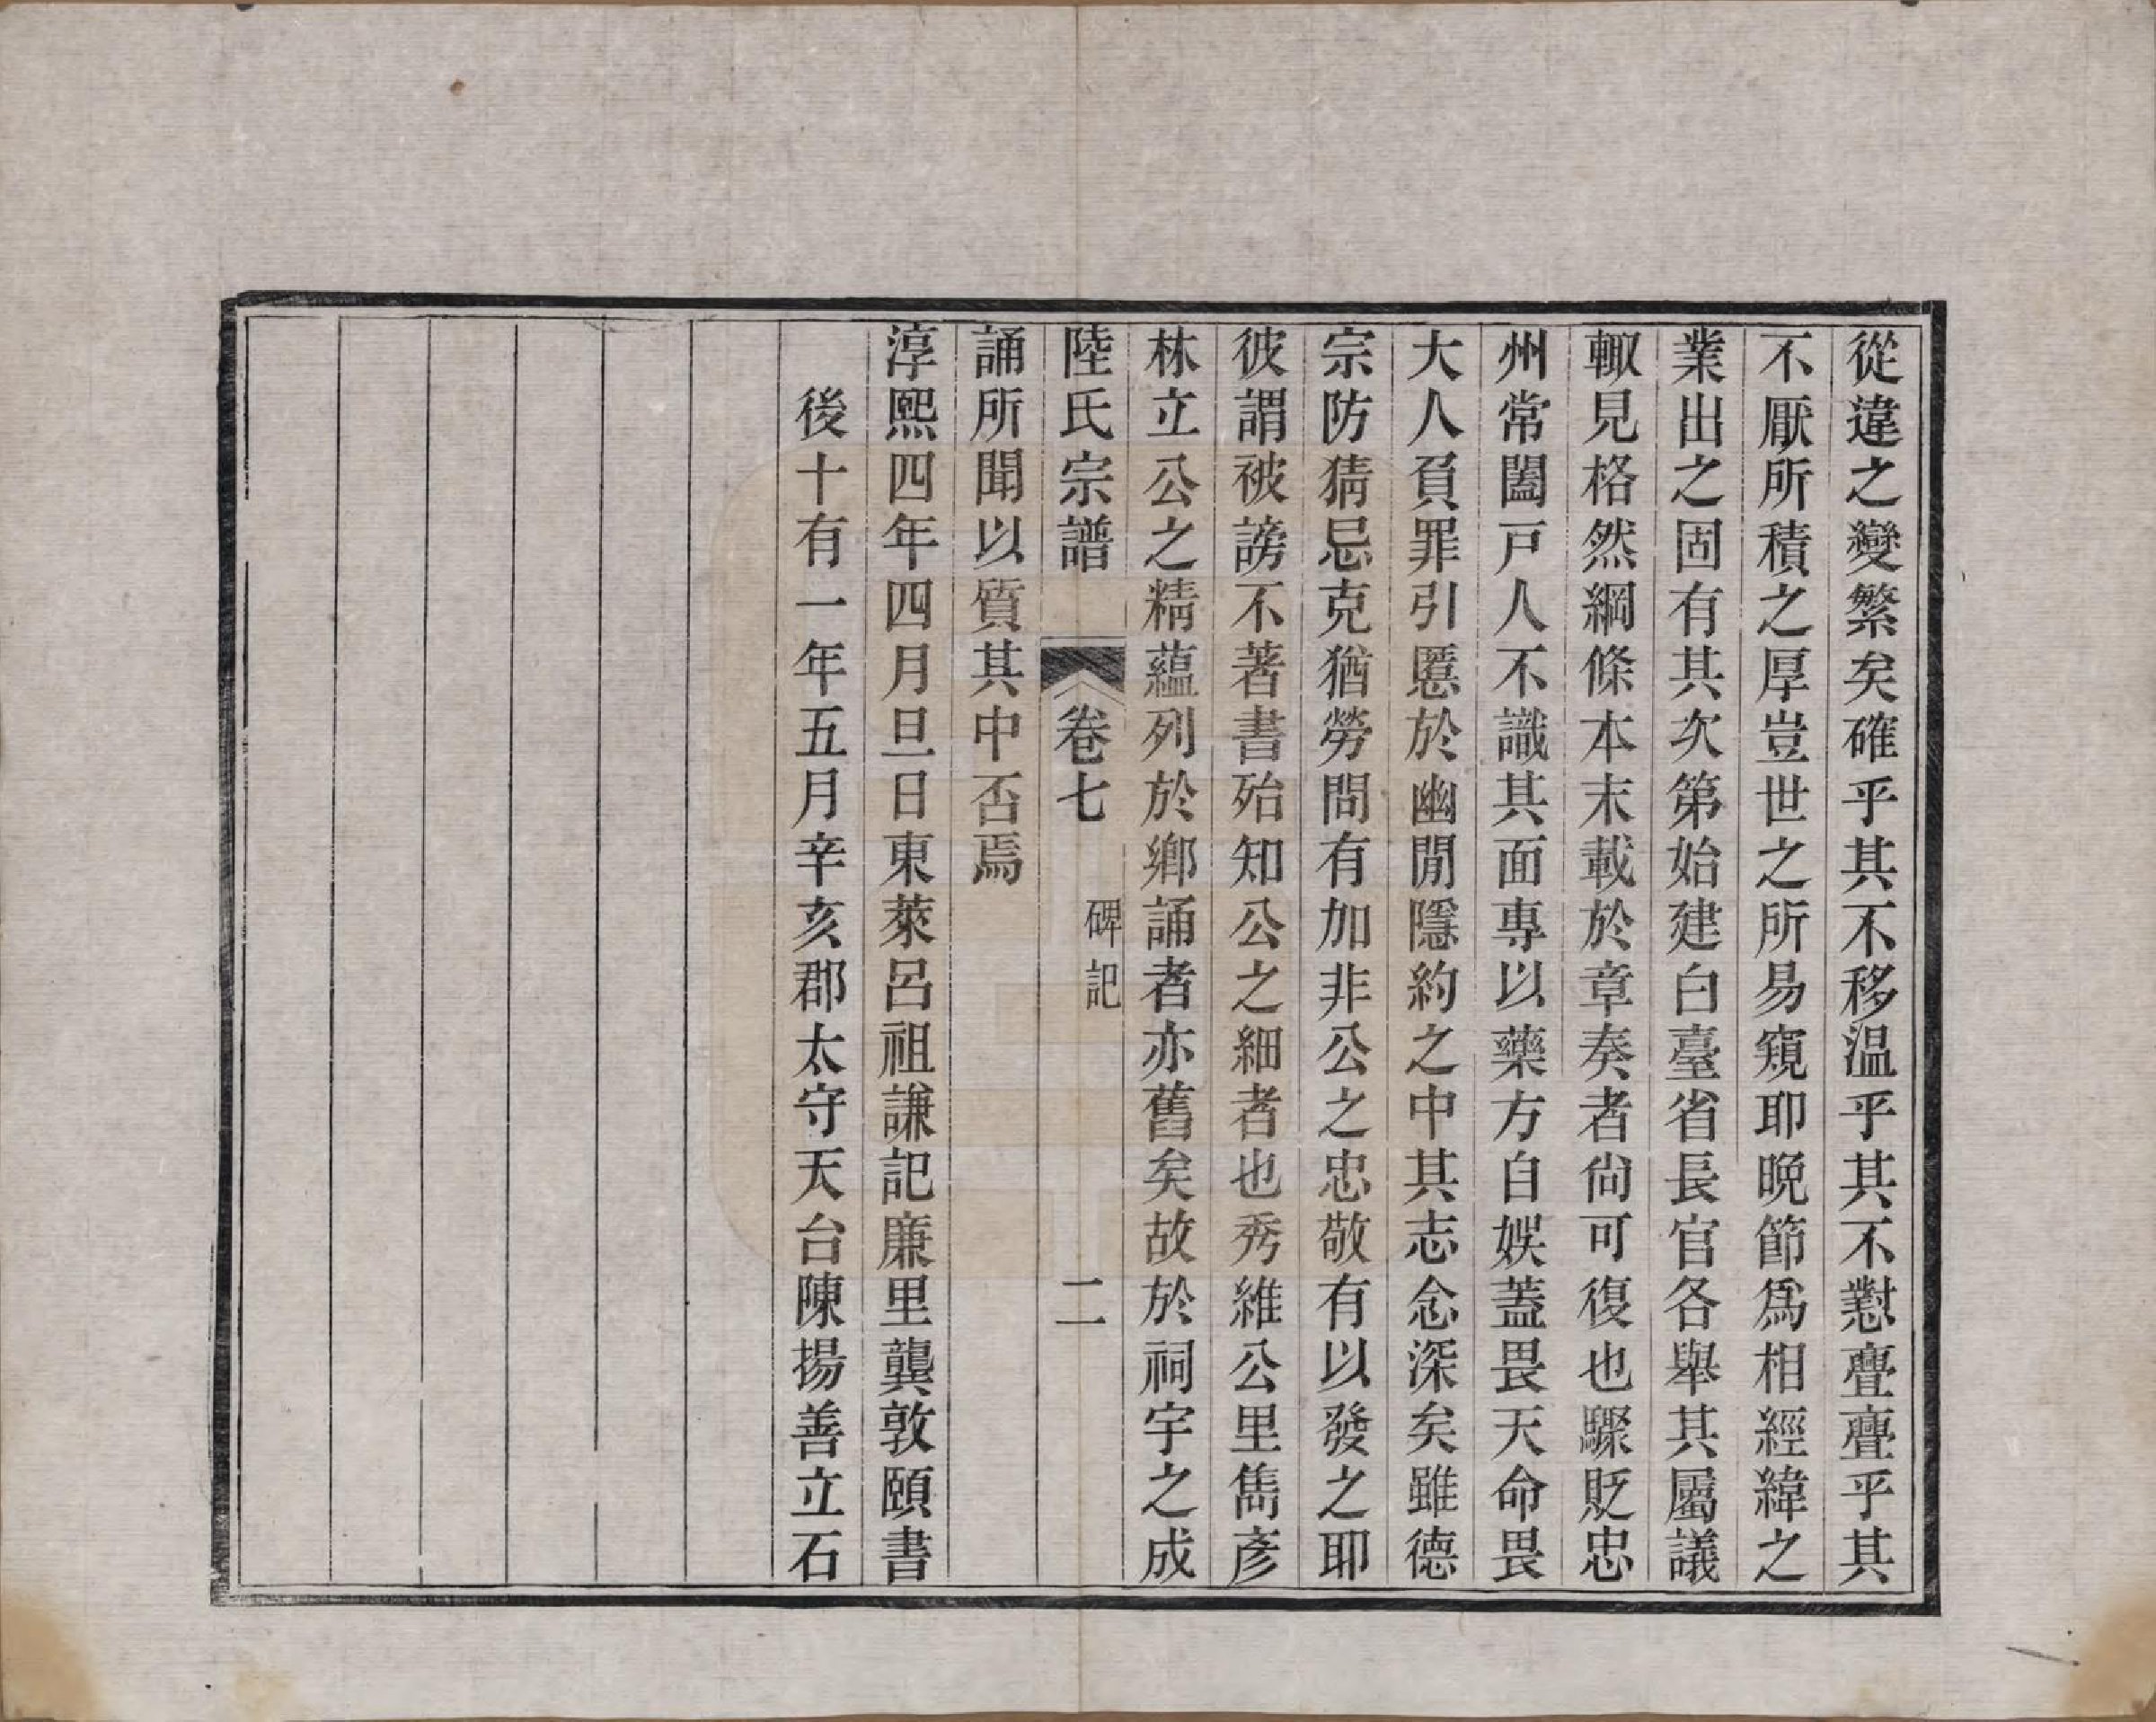 從違之變繁矣確乎其不移温乎其不懟亹亹乎其
不厭所積之厚豈世之所易窺耶晚節爲相經緯之
業出之固有其次第始建白臺省長官各舉其屬議
輙見格然綱條本末載於章奏者尙可復也驟貶忠
州常闔戸人不識其面專以藥方自娛蓋畏天命畏
大人負罪引慝於幽閒隱約之中其志念深矣雖德
宗防猜忌克猶勞問有加非公之忠敬有以發之耶
彼謂被謗不著書殆知公之細者也秀維公里雋彥
林立公之精蘊列於鄉誦者亦舊矣故於祠宇之成
陸氏宗譜　卷七　碑記　二
誦所聞以質其中否焉
淳熙四年四月旦日東萊呂祖謙記廉里龔敦頤書
後十有一年五月辛亥郡太守天台陳揚善立石